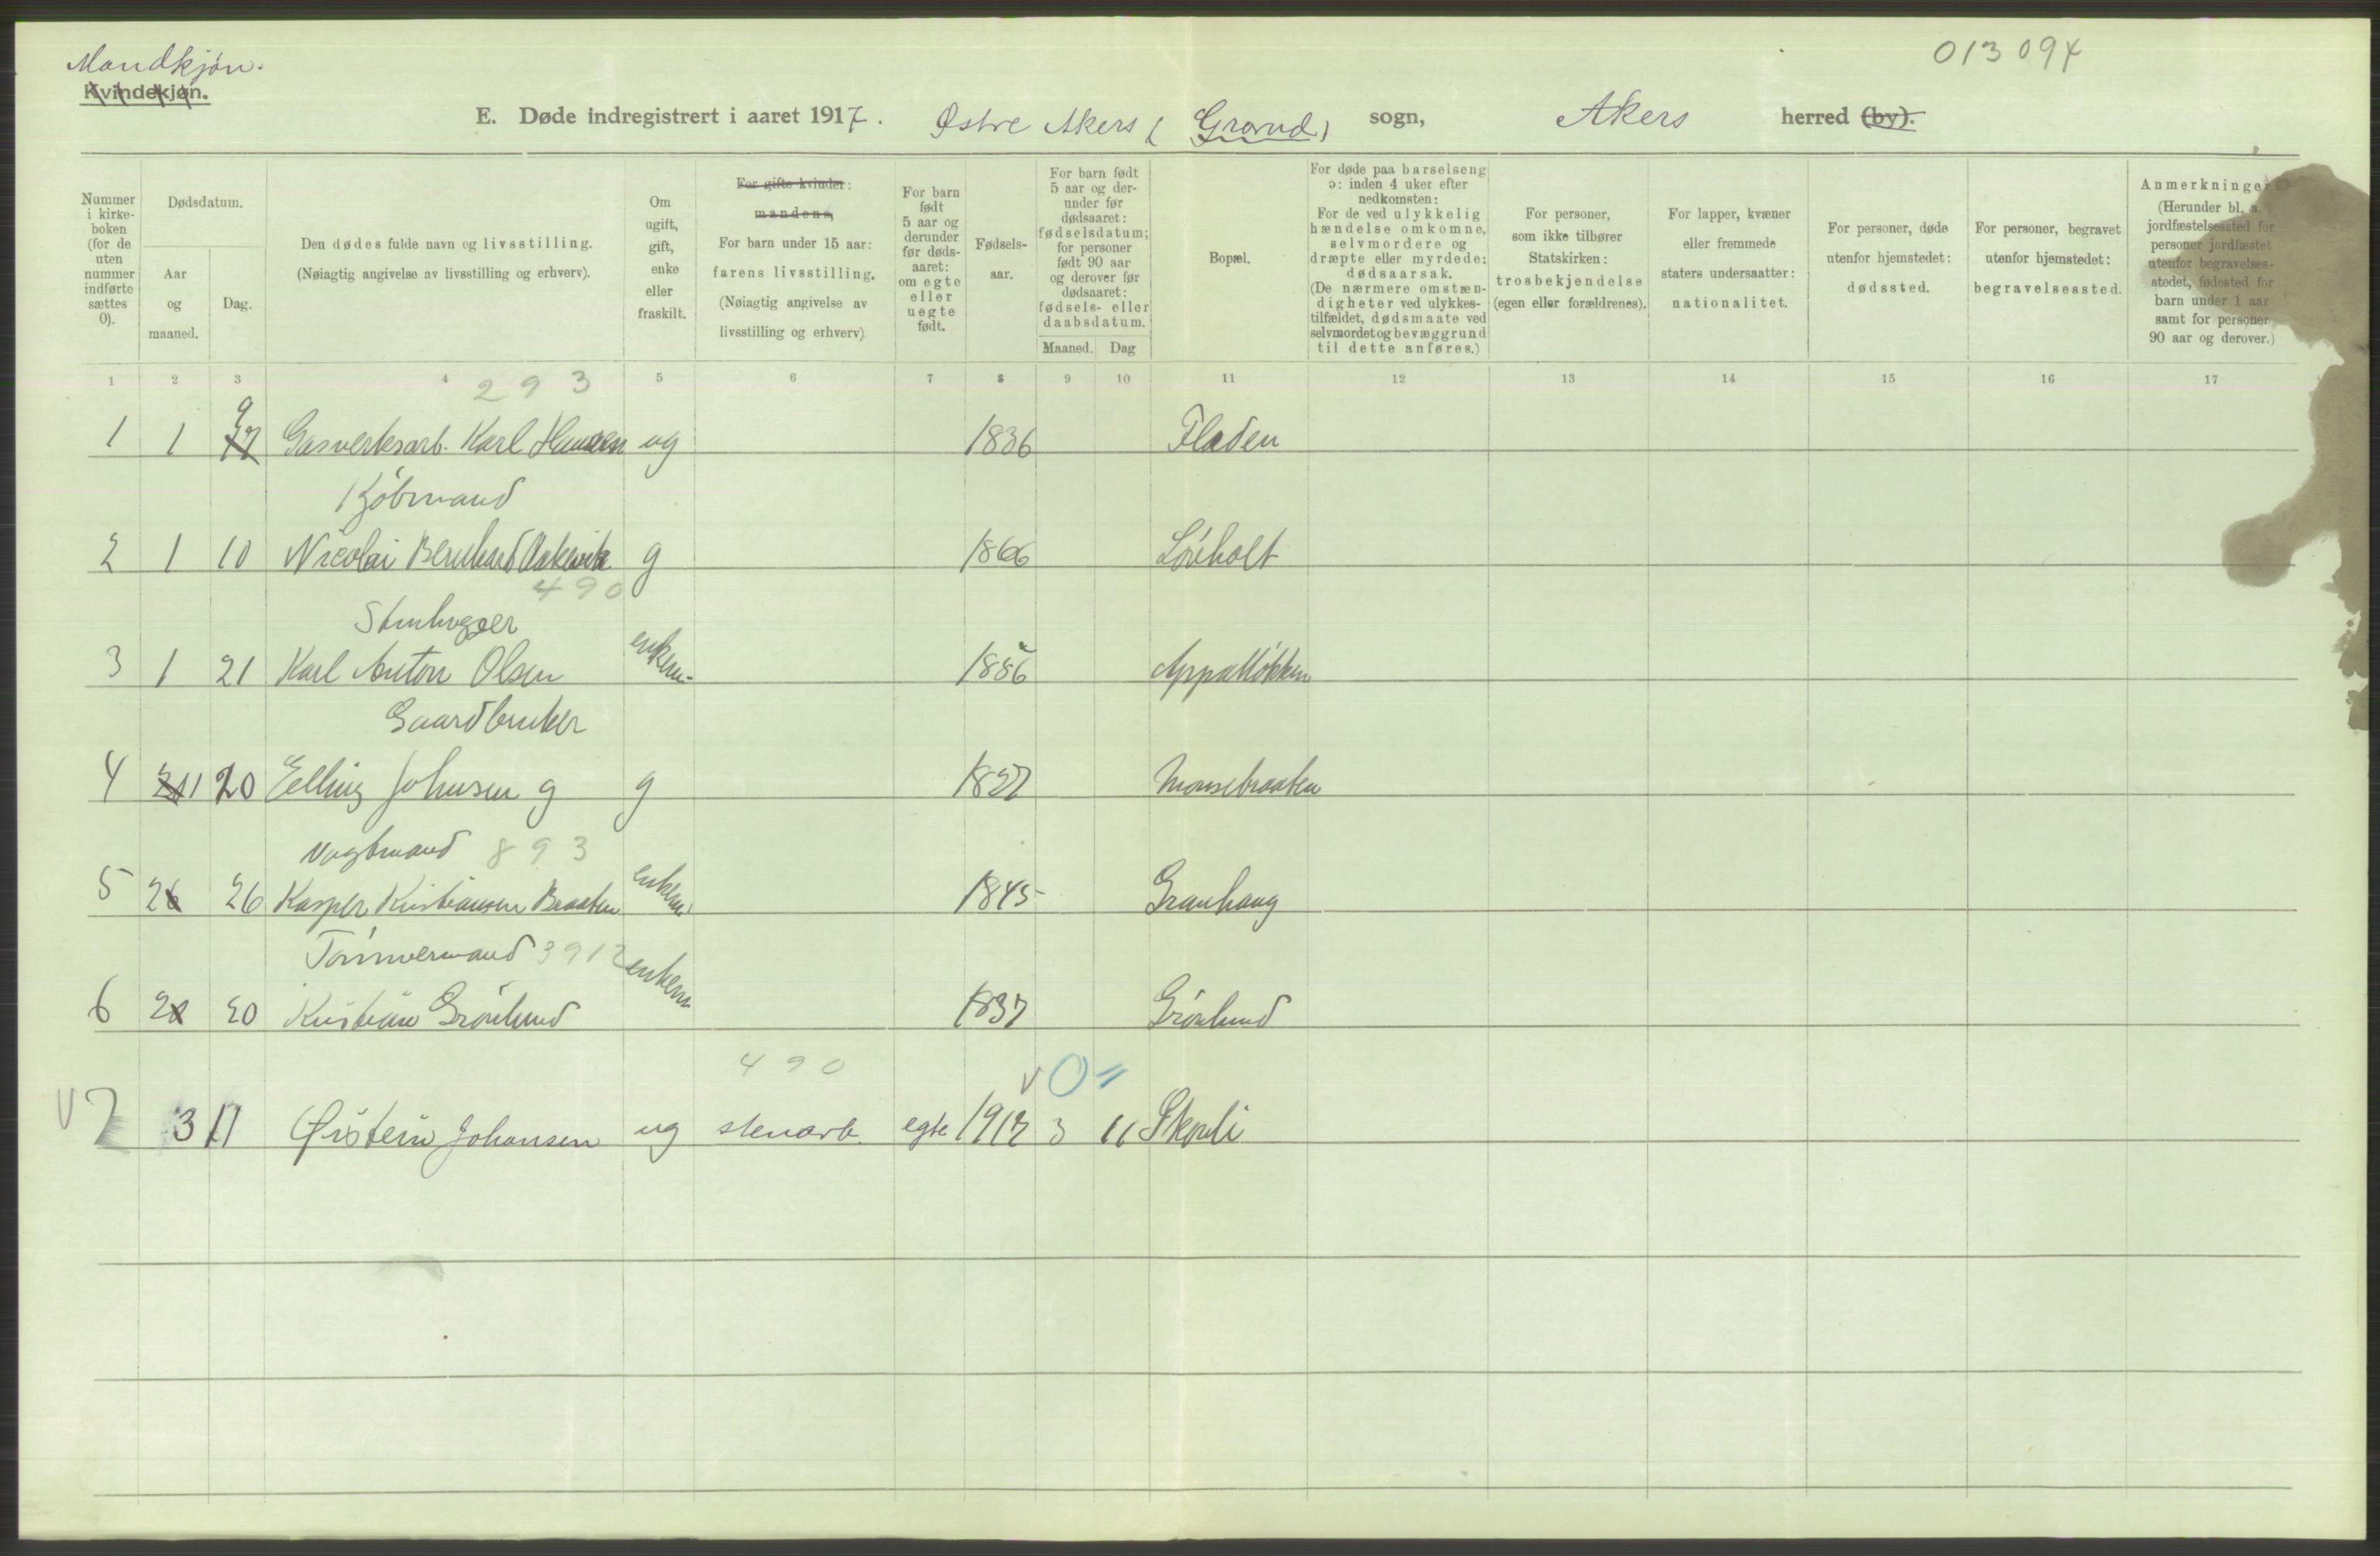 Mandkjøn.
013 094
Kvindekjøn.
E. Døde indregistrert i aaret 1917. Østre Akers (Grorud) sogn, Akers herred (by).
Nummer i kirke-boken (for de uten nummer indførte sættes 0).
Dødsdatum.
Aar og maaned.
Dag.
Den dødes fulde navn og livsstilling.
(Nøiagtig angivelse av livsstilling og erhverv).
Om ugift, gift, enke eller fraskilt.
For gifte kvinder: mandens,
For barn under 15 aar: farens livsstilling.
(Nøiagtig angivelse av livsstilling og erhverv)
For barn født 5 aar og derunder før døds-aaret: om egte eller uegte født.
Fødsels-aar.
For barn født 5 aar og der-under før dødsaaret: fødselsdatum; for personer født 90 aar og derover før dødsaaret: fødsels- eller daabsdatum.
Maaned. Dag
Bopæl.
For døde paa barselseng ɔ: inden 4 uker efter nedkomsten:
For de ved ulykkelig hændelse omkomne, selvmordere og dræpte eller myrdede: dødsaarsak.
(De nærmere omstæn-digheter ved ulykkes-tilfældet, dødsmaate ved selvmordet og bevæggrund til dette anføres.)
For personer, som ikke tilhører Statskirken: trosbekjendelse (egen eller forældrenes).
For lapper, kvæner eller fremmede staters undersaatter: nationalitet.
For personer, døde utenfor hjemstedet: dødssted.
For personer, begravet utenfor hjemstedet: begravelsessted.
Anmerkninger
(Herunder bl. a. jordfæstelsessted for personer jordfæstet utenfor begravelses-stedet, fødested for barn under 1 aar samt for personer 90 aar og derover.)
1 2 3 4 5 6 7 8 9 10 11 12 13 14 15 16 17
293
1 1 9 Gasverksarb. Karl Hansen ug 1836 Fladen
Kjøbmand
2 1 10 Nicolai Bernhard g 1866 Lønholt
490
Stenhugger
3 1 21 Karl Anton Olsen enkem. 1856
Gaardbruker
4 11 20 Elling Johnsen g g 1827 Monsebraaten
Vagtmand 893
5 2 26 Kasper Kristiansen Braaten enkem 1845 Granhaug
Tømmermand 3912
6 2 20 Kristian Grønlund enkem 1837 Grønlund
490
V 0 =
V 7 3 11 Øistein Johansen ug stenarb. egte 1917 3 11 Skouli